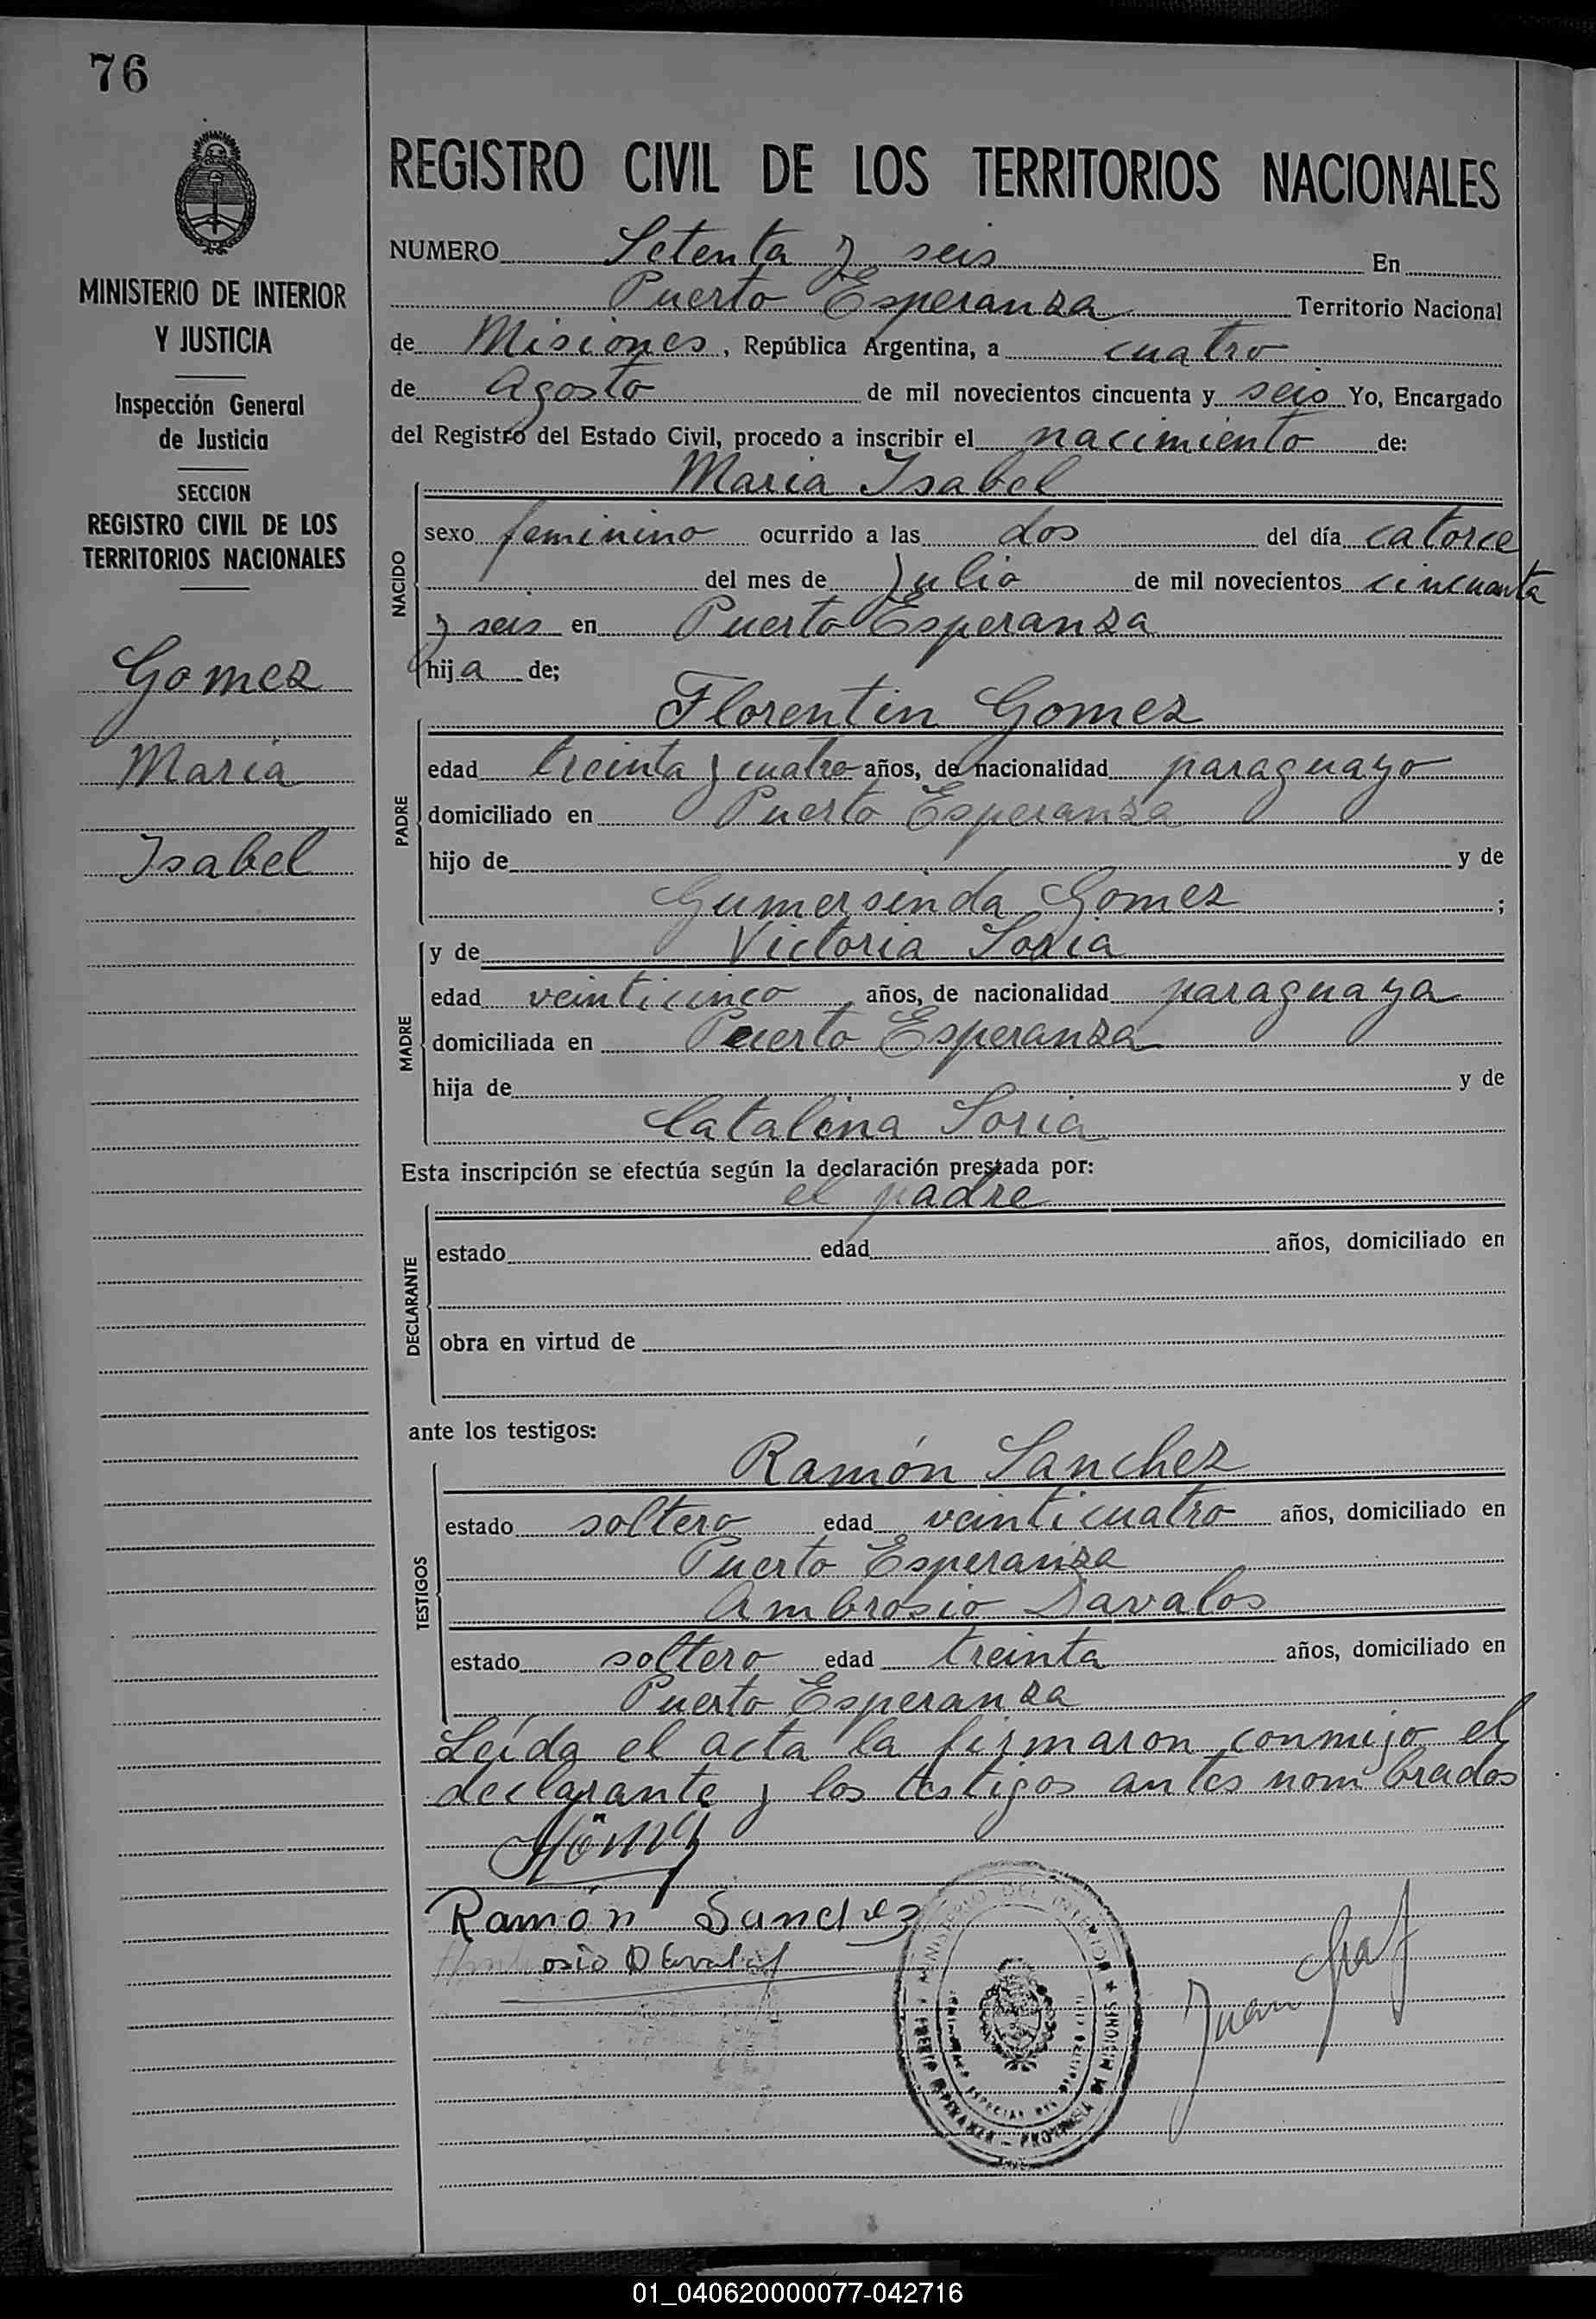 76
MINISTERIO DE INTERIOR
Y JUSTICIA
Inspección General
de Justicia
SECCION
REGISTRO CIVIL DE LOS
TERRITORIOS NACIONALES
Gomez
Maria
Isabel
REGISTRO CIVIL DE LOS TERRITORIOS NACIONALES
NUMERO Setenta y seis En
Puerto Esperanza Territorio Nacional
de Misiones, República Argentina, a cuatro
de Agosto de mil novecientos cincuenta y seis Yo, Encargado
del Registro del Estado Civil, procedo a inscribir el nacimiento de:
Maria Isabel
NACIDO
sexo feminino ocurrido a las dos del día catorce
del mes de Julio de mil novecientos cincuenta
y seis en Puerto Esperanza
hija de;
Florentin Gomez
PADRE
edad treinta y cuatro años, de nacionalidad paraguayo
domiciliado en Puerto Esperanza
hijo de y de
Gumersinda Gomez ;
y de Victoria Soria
MADRE
edad veinticinco años, de nacionalidad paraguaya
domiciliada en Puerto Esperanza
hija de y de
Catalina Soria
Esta inscripción se efectúa según la declaración prestada por:
el padre
DECLARANTE
estado edad años, domiciliado en
obra en virtud de
ante los testigos:
Ramón Sanchez
TESTIGOS
estado soltero edad veinticuatro años, domiciliado en
Puerto Esperanza
Ambrosio Davalos
estado soltero edad treinta años, domiciliado en
Puerto Esperanza
Leída el acta la firmaron conmigo el
declarante y los testigos antes nombrados
Ramón Sanchez
MINISTERIO DEL INTERIOR
PUERTO ESPERANZA - PROVINCIA DE MISIONES
Juan
01_040620000077-042716